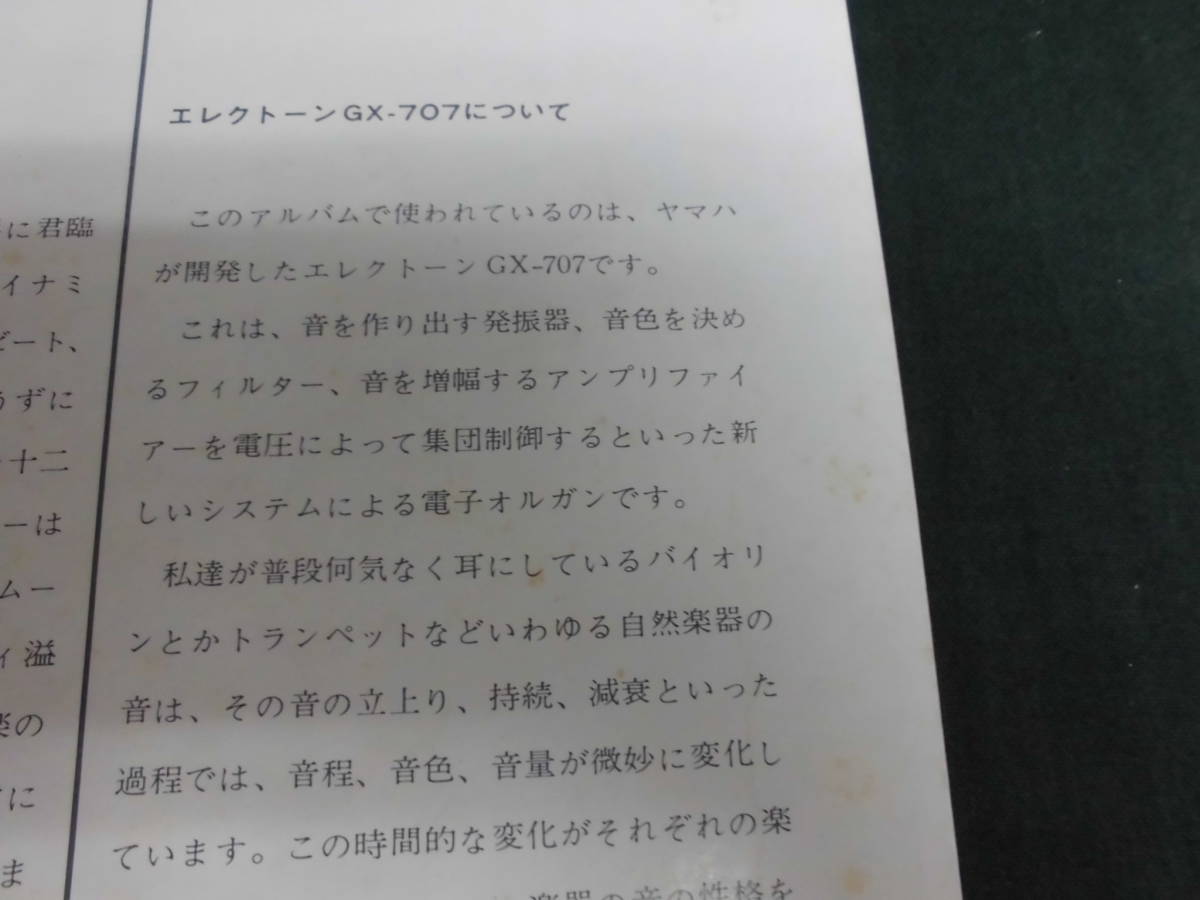 に君臨
イナミ
ビート、
うずに
十二
ーは
ムー
ィ溢
楽の
に
ま
エレクトーンGX-707について
このアルバムで使われているのは、ヤマハ
が開発したエレクトーンGX-707です。
これは、音を作り出す発振器、音色を決め
るフィルター、音を増幅するアンプリファイ
アーを電圧によって集団制御するといった新
しいシステムによる電子オルガンです。
私達が普段何気なく耳にしているバイオリ
ンとかトランペットなどいわゆる自然楽器の
音は、その音の立上り、持続、減衰といった
過程では、音程、音色、音量が微妙に変化し
ています。この時間的な変化がそれぞれの楽
楽器の音の性格を